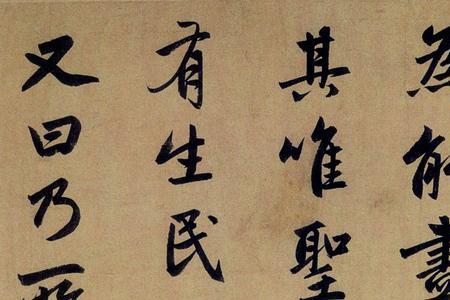 為能盡
其唯聖
有生民
又曰乃